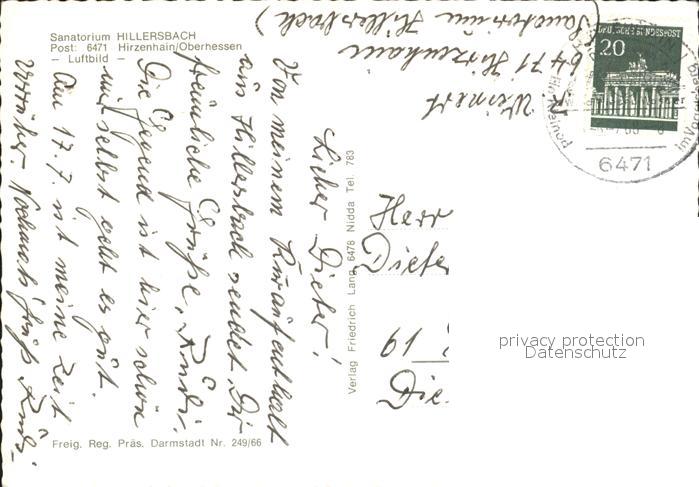 Sanatorium HILLERSBACH
Post: 6471 Hirzenhain/Oberhessen
– Luftbild –
Lieber Dieter!
Von meinem Kuraufenthalt
aus Hillersbach sendet Dir
freundliche Grüße, Rudi.
Die Gegend ist hier schön
mir selbst geht es gut.
Am 17.7. ist meine Zeit
vorüber. Nochmals Gruß Rudi.
Freig. Reg. Präs. Darmstadt Nr. 249/66
Verlag Friedrich Lang 6478 Nidda Tel. 783
R. Weinert
6471 Hirzenhain
Sanatorium Hillersbach)
20
DEUTSCHE BUNDESPOST
6471
Herr
Dieter
61
Die
privacy protection
Datenschutz